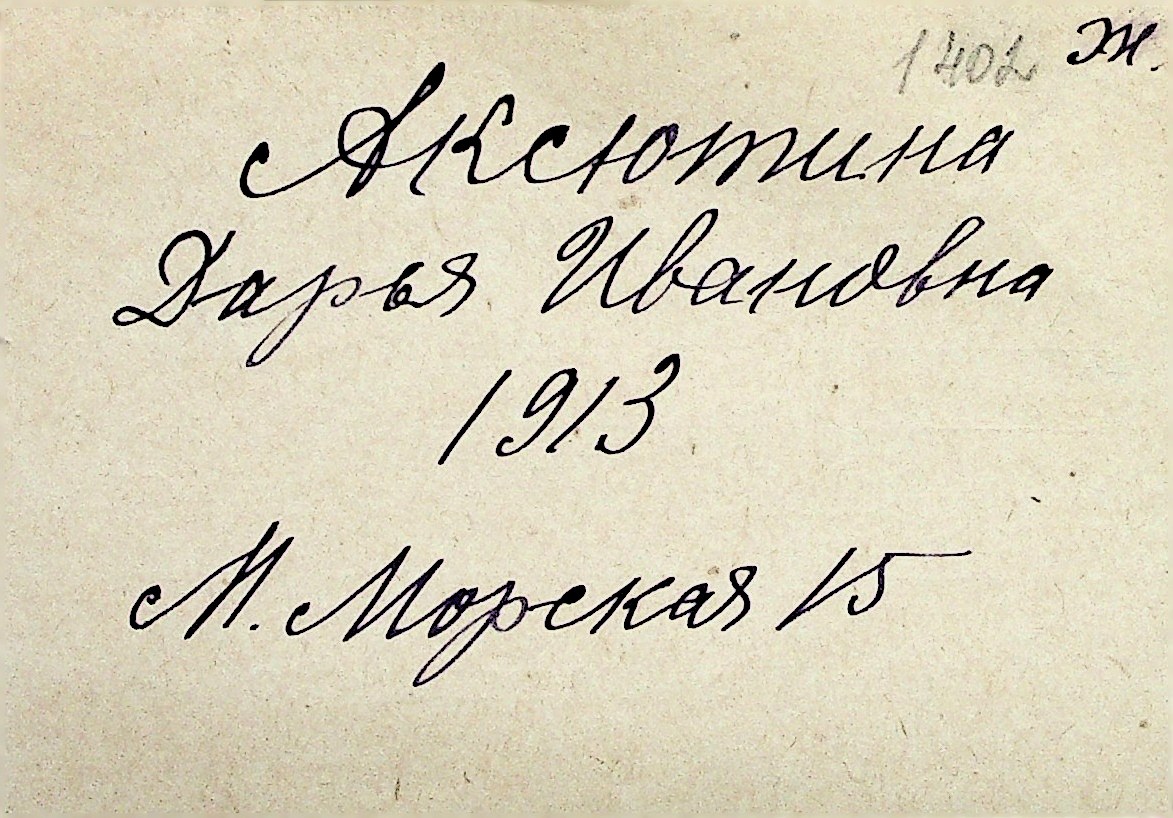 1402 ж.
Аксютина
Дарья Ивановна
1913
М. Морская 15